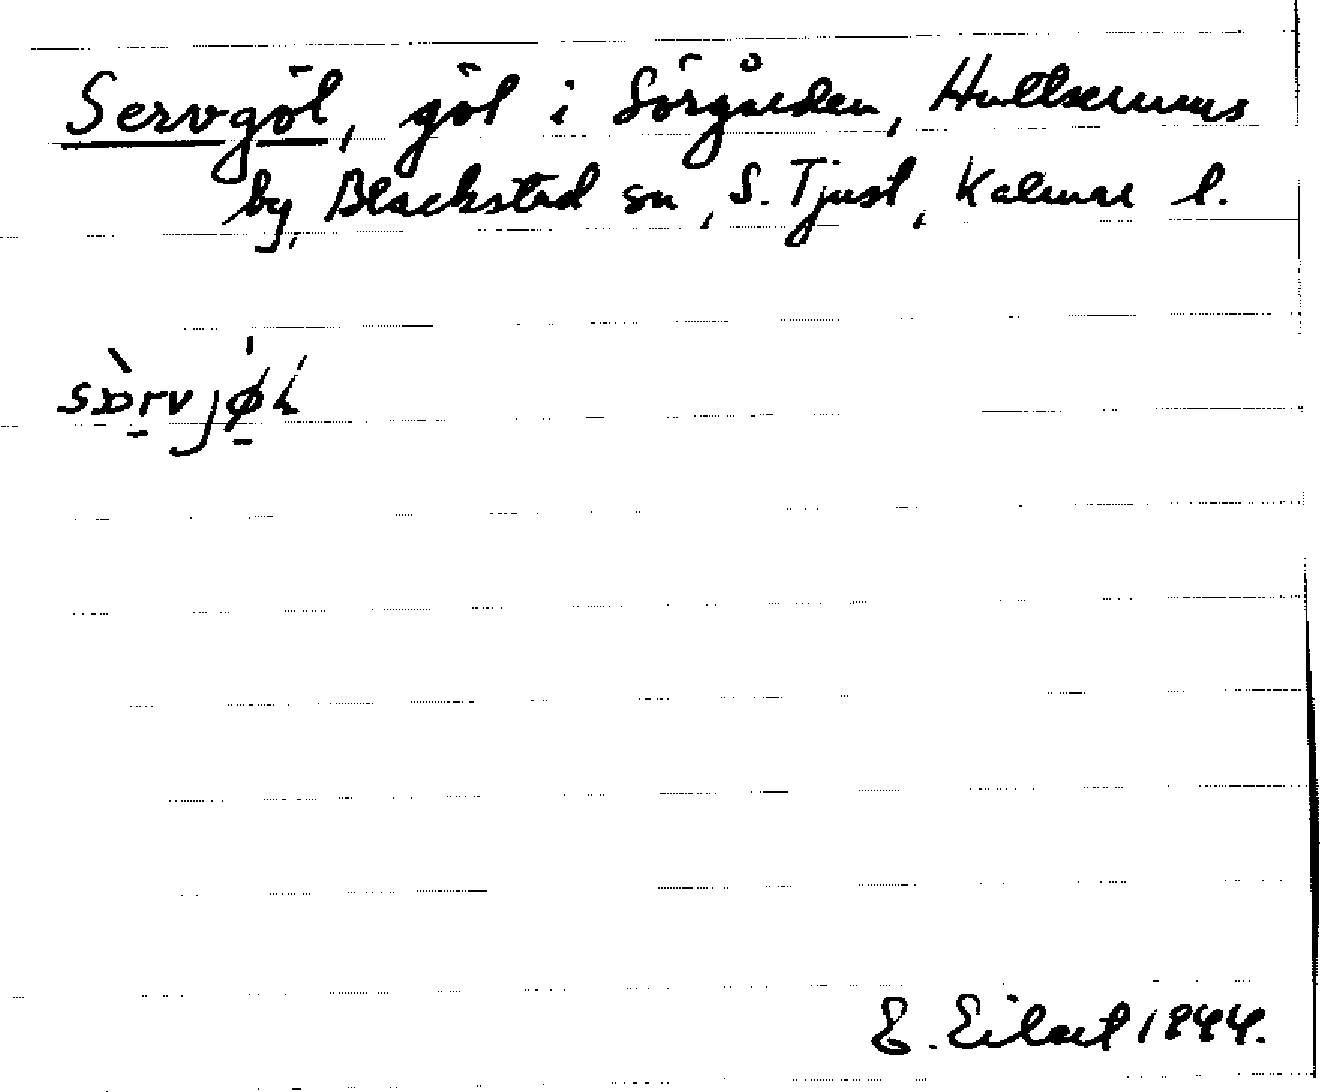 Servgöl, göl i Sörgården, Hultserums
by, Blackstad sn, S. Tjust, Kalmar l.
E. Eilert 1944.